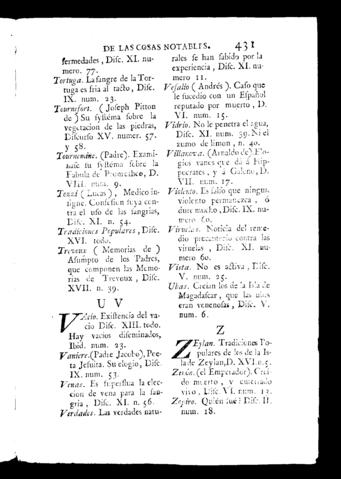 DE LAS COSAS NOTABLES. 431
fermedades, Disc. XI. nu-
mero. 77.
Tortuga. La sangre de la Tor-
tuga es fria al tacto, Disc.
IX. num. 23.
Tournefort. (Joseph Pitton
de) Su systéma sobre la
vegetacion de las piedras,
Discurso XV. numer. 57.
y 58.
Tournemine. (Padre). Exami-
nase su systéma sobre la
Fabula de Prometheo, D.
VIII. num. 9.
(Lucas), Medico in-
signe. Confesion suya con-
tra el uso de las sangrias,
Disc. XI. n. 54.
Tradiciones Populares, Disc.
XVI. todo.
Trevoux (Memorias de)
Asumpto de los Padres,
que componen las Memo-
rias de Trevoux, Disc.
XVII. n. 39.
U V
Vacio. Existencia del va-
cio Disc. XIII. todo.
Hay vacios diseminados,
Ibid. num. 23.
Vaniere. (Padre Jacobo), Poe-
ta Jesuita. Su elogio, Disc.
IX. num. 53.
Venas. Es superflua la elec-
cion de vena para la san-
gria, Disc. XI. n. 56.
Verdades. Las verdades natu-
rales se han sabido por la
experiencia, Disc. XI. nu-
mero 11.
Vesalio (Andrés). Caso que
le sucedió con un Español
reputado por muerto, D.
VI. num. 15.
Vidrio. No le penetra el agua,
Disc. XI. num. 39. Ni el
zumo de limon, n. 40.
Villanova. (Arnaldo de) Elo-
gios vanos que dá á Hip-
pocrates, y á Galeno, D.
VII. num. 17.
Violento. Es falso que ningun
violento permanezca, ó
dure mucho, Disc. IX. nu-
mero 60.
Viruelas. Noticia del reme-
dio precautorio contra las
viruelas, Disc. XI. nu-
mero 60.
Vista. No es activa, Disc.
V. num. 25.
Ubas. Creían los de la Isla de
Magadascar, que las ubas
eran venenosas, Disc. V.
num. 6.
Z
Zeylan. Tradiciones Po-
pulares de los de la Is-
la de Zeylan, D. XVI. n. 5.
(el Emperador). Creí-
do muerto, y enterrado
vivo, Disc. VI. num. 12.
Zopiro. Quién fué? Disc. II.
num. 18.